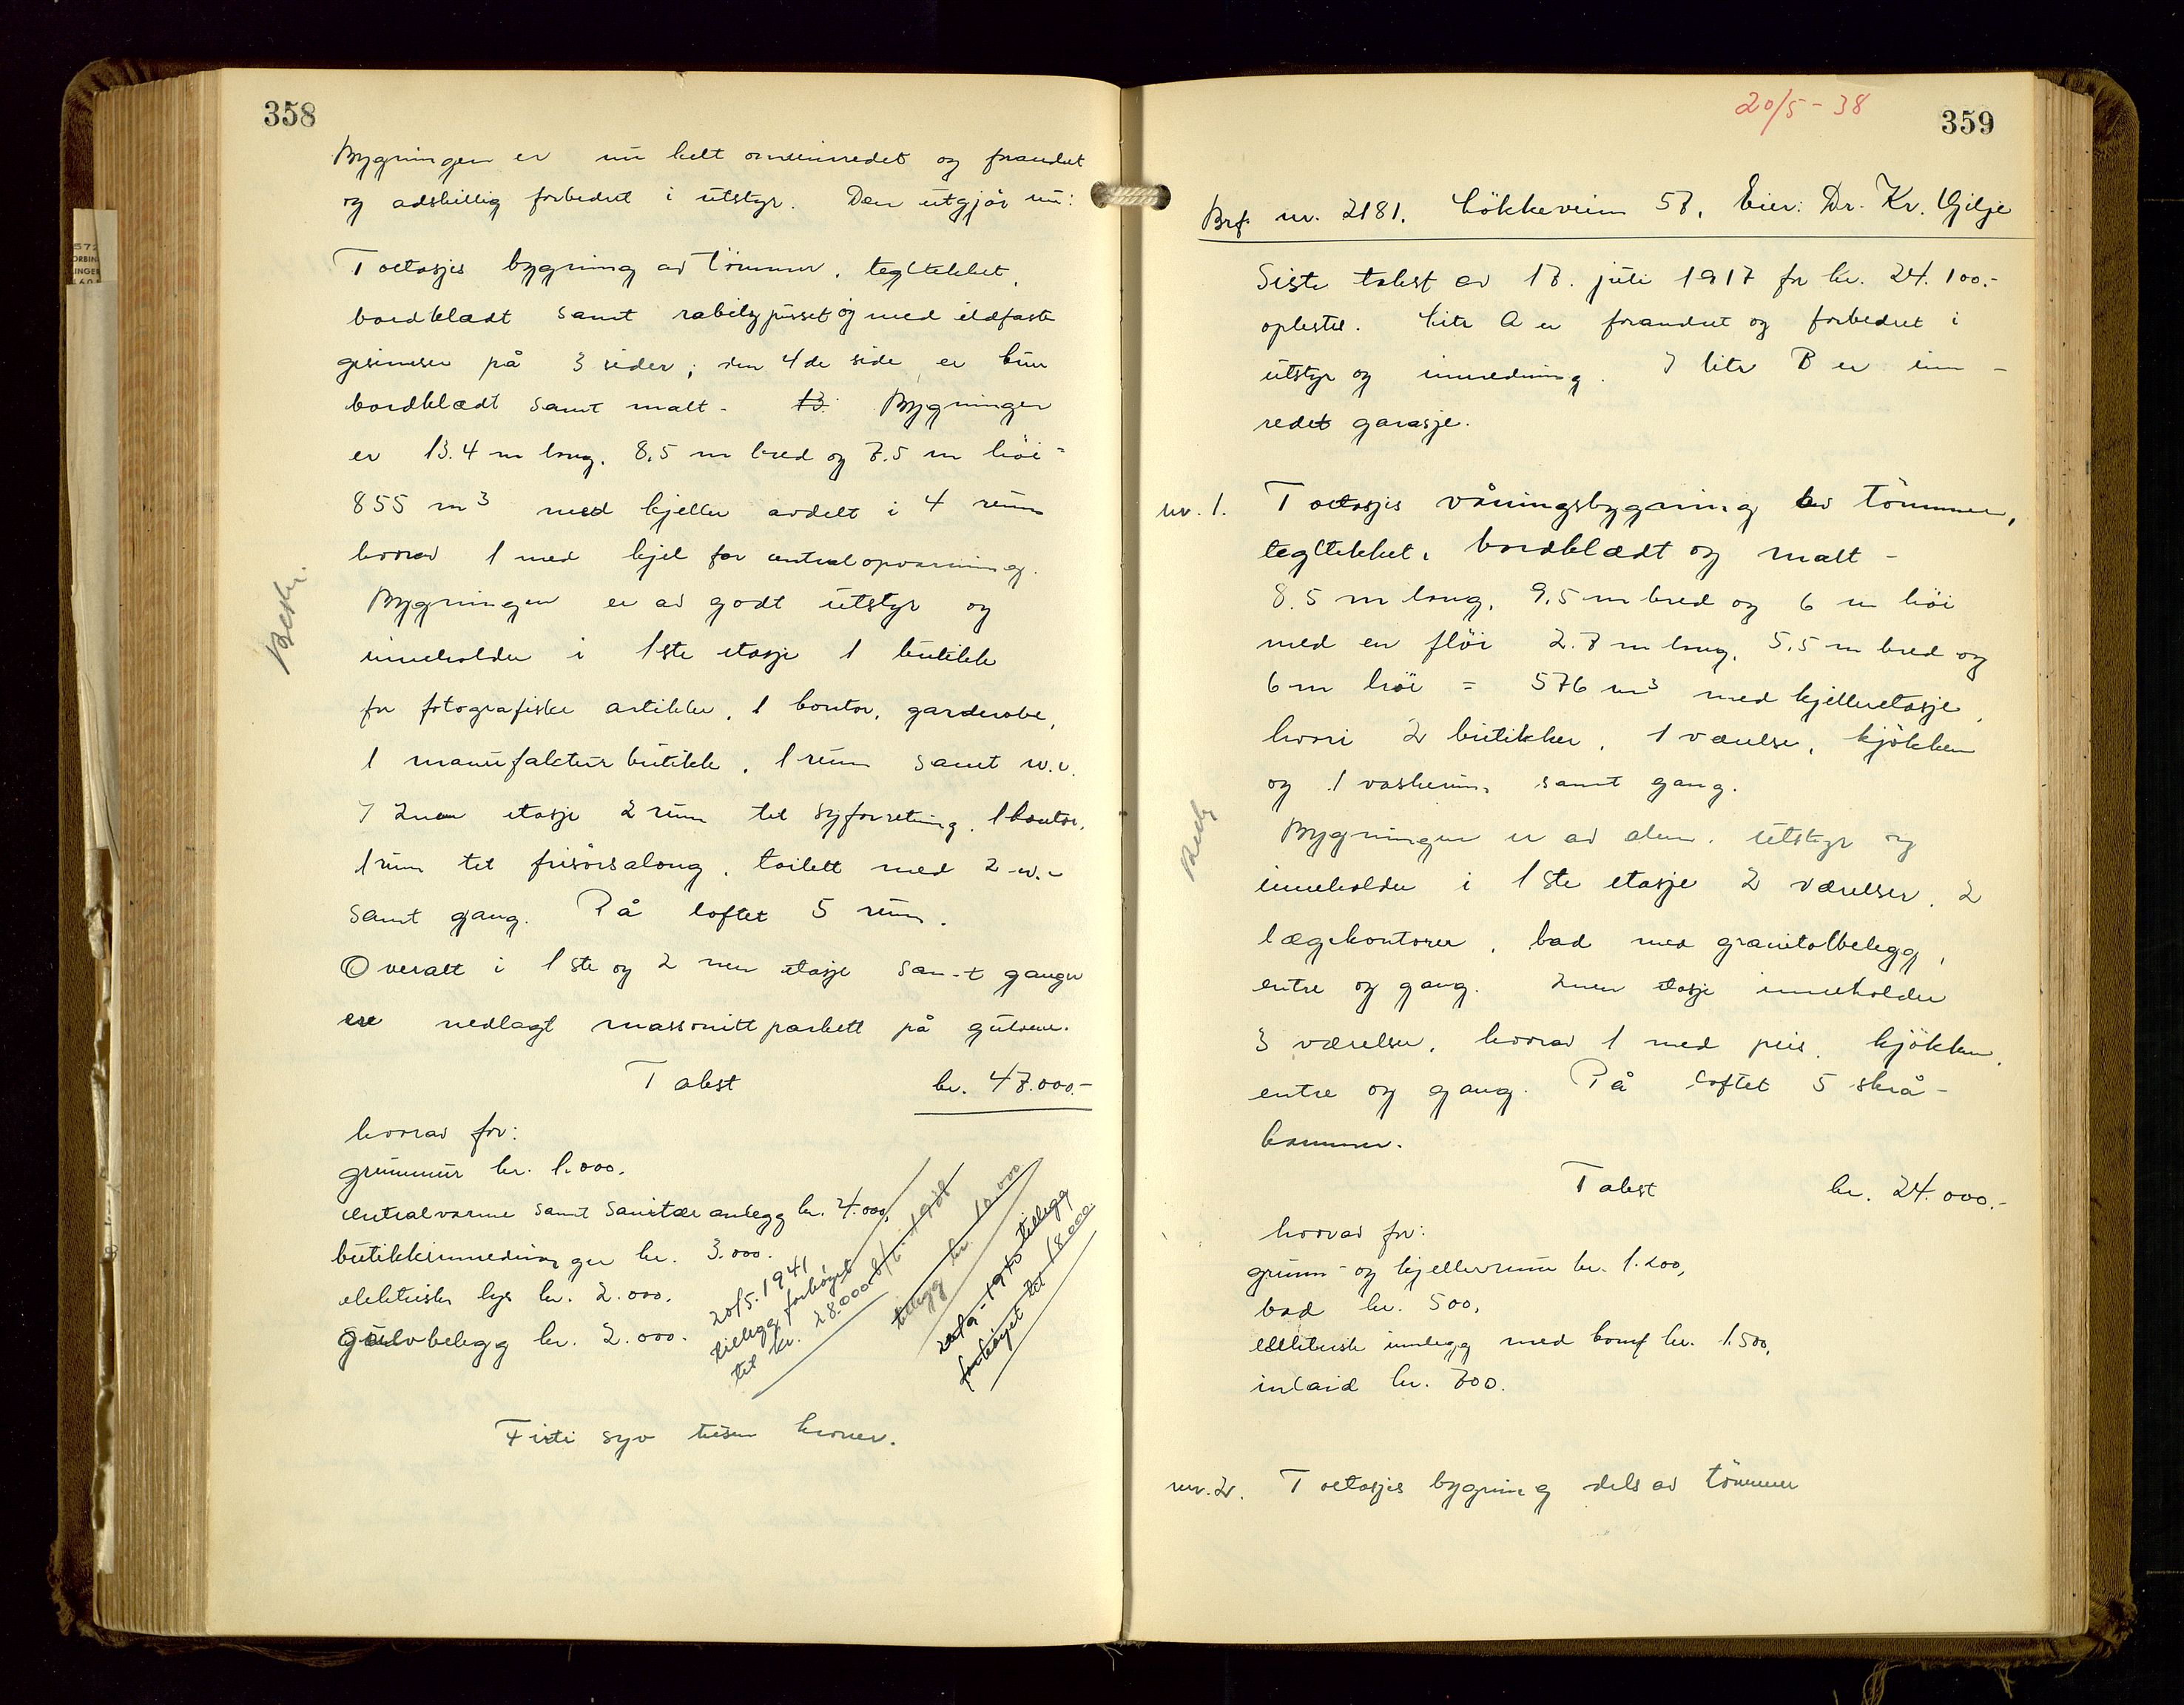 358
Bygningen er nu helt omreinredet og forandret
og adskillig forbedret i utstyr. Den utgjör nu:
Toetasjes bygning av tömmer, tegltekket,
bordklædt samt rabitzpusset og med ildfaste
gesimser på 3 sider; den 4de side er kun
bordklædt samt malt. B. Bygningen
er 13.4 m lang, 8,5 m bred og 7.5 m höi =
855 m3 med kjeller avdelt i 4 rum
hvorav 1 med kjel for centralopvarming.
Bygningen er av godt utstyr og
inneholder i 1ste etasje 1 butikk
for fotografiske artikler, 1 kontor, garderobe,
1 manufakturbutikk, 1 rum samt w.c.
I 2nen etasje 2 rum til syforretning, 1 kontor,
1 rum til frisörsalong, toilett med 2 w.c
samt gang. På loftet 5 rum.
Overalt i 1ste og 2nen etasje samt ganger
ere nedlagt massonittparkett på gulvene.
Takst kr. 47.000.-
hvorav for:
grunnmur kr. 1.000.
centralvarme samt sanitær anlegg kr. 4.000,
butikkinnredninger kr. 3.000.
elektriske lys kr. 2.000.
Gulvbelegg kr. 2.000.
20/5.1941
tillegg forhöiet
til kr. 28.000.-
tillegg kr. 10.000
tillegg
forhöiet til 18000.
Firti syv tusen kroner.
20/5-38
359
Brf. nr. 2181. Lökkeveien 57, Eier: Dr. Kr. Gilje
Siste takst av 17. juli 1917 for kr. 24.100.-
oplestes. Litr A er forandret og forbedret i
utstyr og innredning. I litr B er inn-
redet garasje.
nr. 1. Toetasjes våningsbygning av tömmer,
tegltekket, bordklædt og malt -
8.5 m lang, 9,5 m bred og 6 m höi
med en flöi 2.7 m lang, 5,5 m bred og
6 m höi = 576 m3 med kjelleretasje,
hvori 2 butikker, 1 værelse, kjökken
og 1 vaskerum, samt gang.
Bygningen er av alm. utstyr og
inneholder i 1ste etasje 2 værelser, 2
lægekontorer, bad med granitolbelegg,
entre og gang. 2nen etasje inneholder
3 værelser, hvorav 1 med peis, kjökken,
entre og gang. På loftet 5 skrå-
kammer.
Takst kr. 24.000.-
hvorav for:
grunn- og kjellermur kr. 1.200,
bad kr. 500,
elektriske innlegg med komf kr. 1.500,
inlaid kr. 700.
nr. 2. Toetasjes bygning dels av tömmer